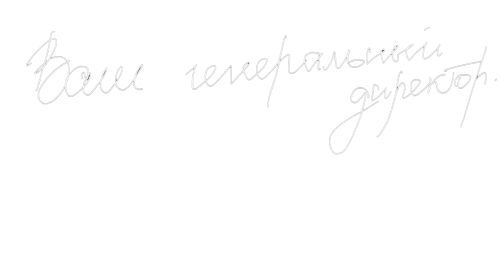 Ваш генеральный
директор.